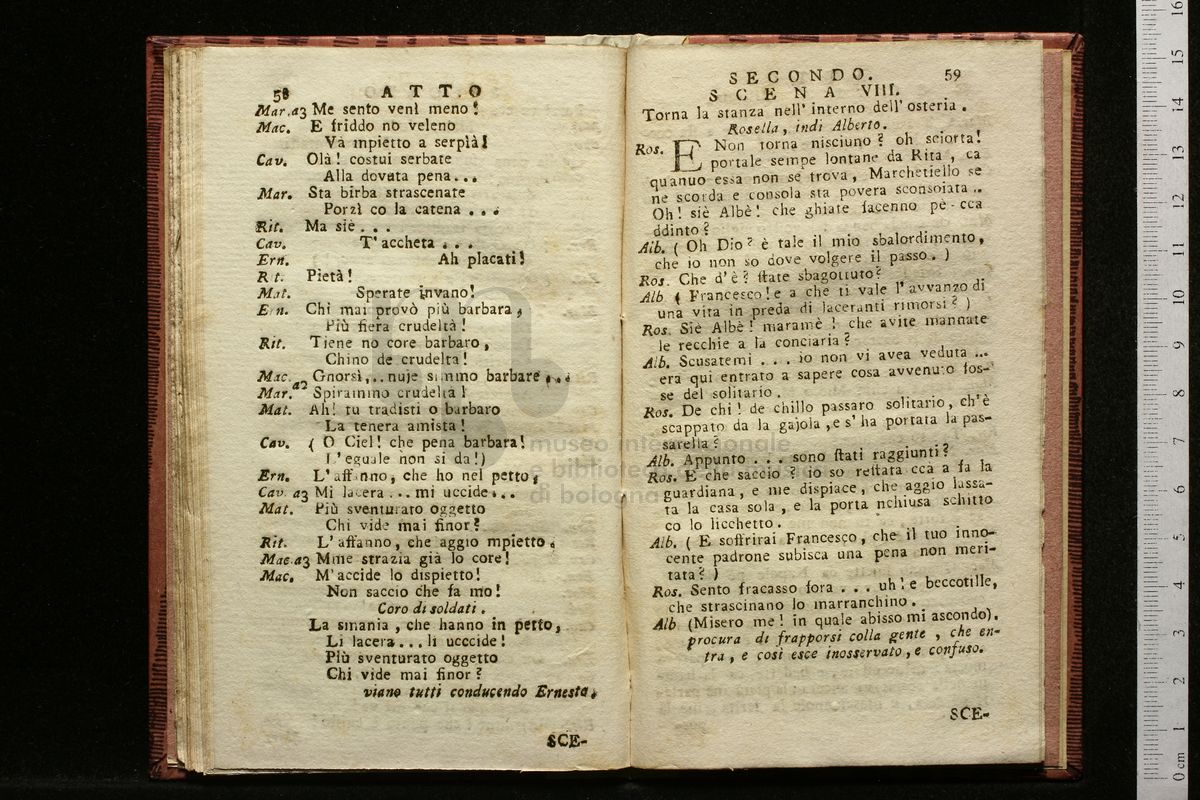 58 ATTO
Mar. a3 Me sento venì meno!
Mac. E friddo no veleno
Va mpietto a serpià!
Cav. Olà! costui serbate
Alla dovuta pena...
Mar. Sta birba strascenate
Porzì co la catena ...
Rit. Ma siè ...
Cav. T' accheta ...
Ern. Ah placati!
Rit. Pietà!
Mat. Sperate invano!
Ern. Chi mai provò più barbara,
Più fiera crudeltà!
Rit. Tiene no core barbaro,
Chino de crudelta!
Mac. a2 Gnorsì,..nuje simmo barbare ...
Mar. Spirammo crudeltà!
Mat. Ah! tu tradisti o barbaro
La tenera amistà!
Cav. ( O Ciel! che pena barbara!
L'eguale non si da!)
Ern. L'affanno, che ho nel petto,
Cav. a3 Mi lacera ... mi uccide...
Mat. Più sventurato oggetto
Chi vide mai finor?
Rit. L'affanno, che aggio mpietto,
Mac. a3 Mme strazia già lo core!
Mac. M'accide lo dispietto!
Non saccio che fa mo!
Coro di soldati.
La smania, che hanno in petto,
Li lacera...li ucccide!
Più sventurato oggetto
Chi vide mai finor?
viano tutti conducendo Ernesto.
SCE-
SECONDO. 59
SCENA VIII.
Torna la stanza nell' interno dell' osteria.
Rosella, indi Alberto.
Ros. E Non torna nisciuno? oh sciorta!
portale sempe lontane da Rita, ca
quanno essa non se trova, Marchetiello se
ne scorda e consola sta povera sconsolata ..
Oh! siè Albè! che ghiate facenno pè-cca
ddinto?
Alb. ( Oh Dio? è tale il mio sbalordimento,
che io non so dove volgere il passo. )
Ros. Che d'è? state sbagottuto?
Alb ( Francesco! e a che ti vale l'avvanzo di
una vita in preda di laceranti rimorsi? )
Ros. Siè Albè! maramè! che avite mannate
le recchie a la conciaria?
Alb. Scusatemi ... io non vi avea veduta ...
era qui entrato a sapere cosa avvenuto fos-
se del solitario.
Ros. De chi! de chillo passaro solitario, ch'è
scappato da la gajola, e s'ha portata la pas-
sarella?
Alb. Appunto ... sono stati raggiunti?
Ros. E che saccio? io so restata ccà a fa la
guardiana, e me dispiace, che aggio lassa-
ta la casa sola, e la porta nchiusa schitto
co lo licchetto.
Alb. ( E soffrirai Francesco, che il tuo inno-
cente padrone subisca una pena non meri-
tata? )
Ros. Sento fracasso fora ... uh! e beccotille,
che strascinano lo marranchino.
Alb (Misero me! in quale abisso mi ascondo).
procura di frapporsi colla gente, che en-
tra, e così esce inosservato, e confuso.
SCE-
museo internazionale
e biblioteca della musica
di bologna
0 cm 1 2 3 4 5 6 7 8 9 10 11 12 13 14 15 16